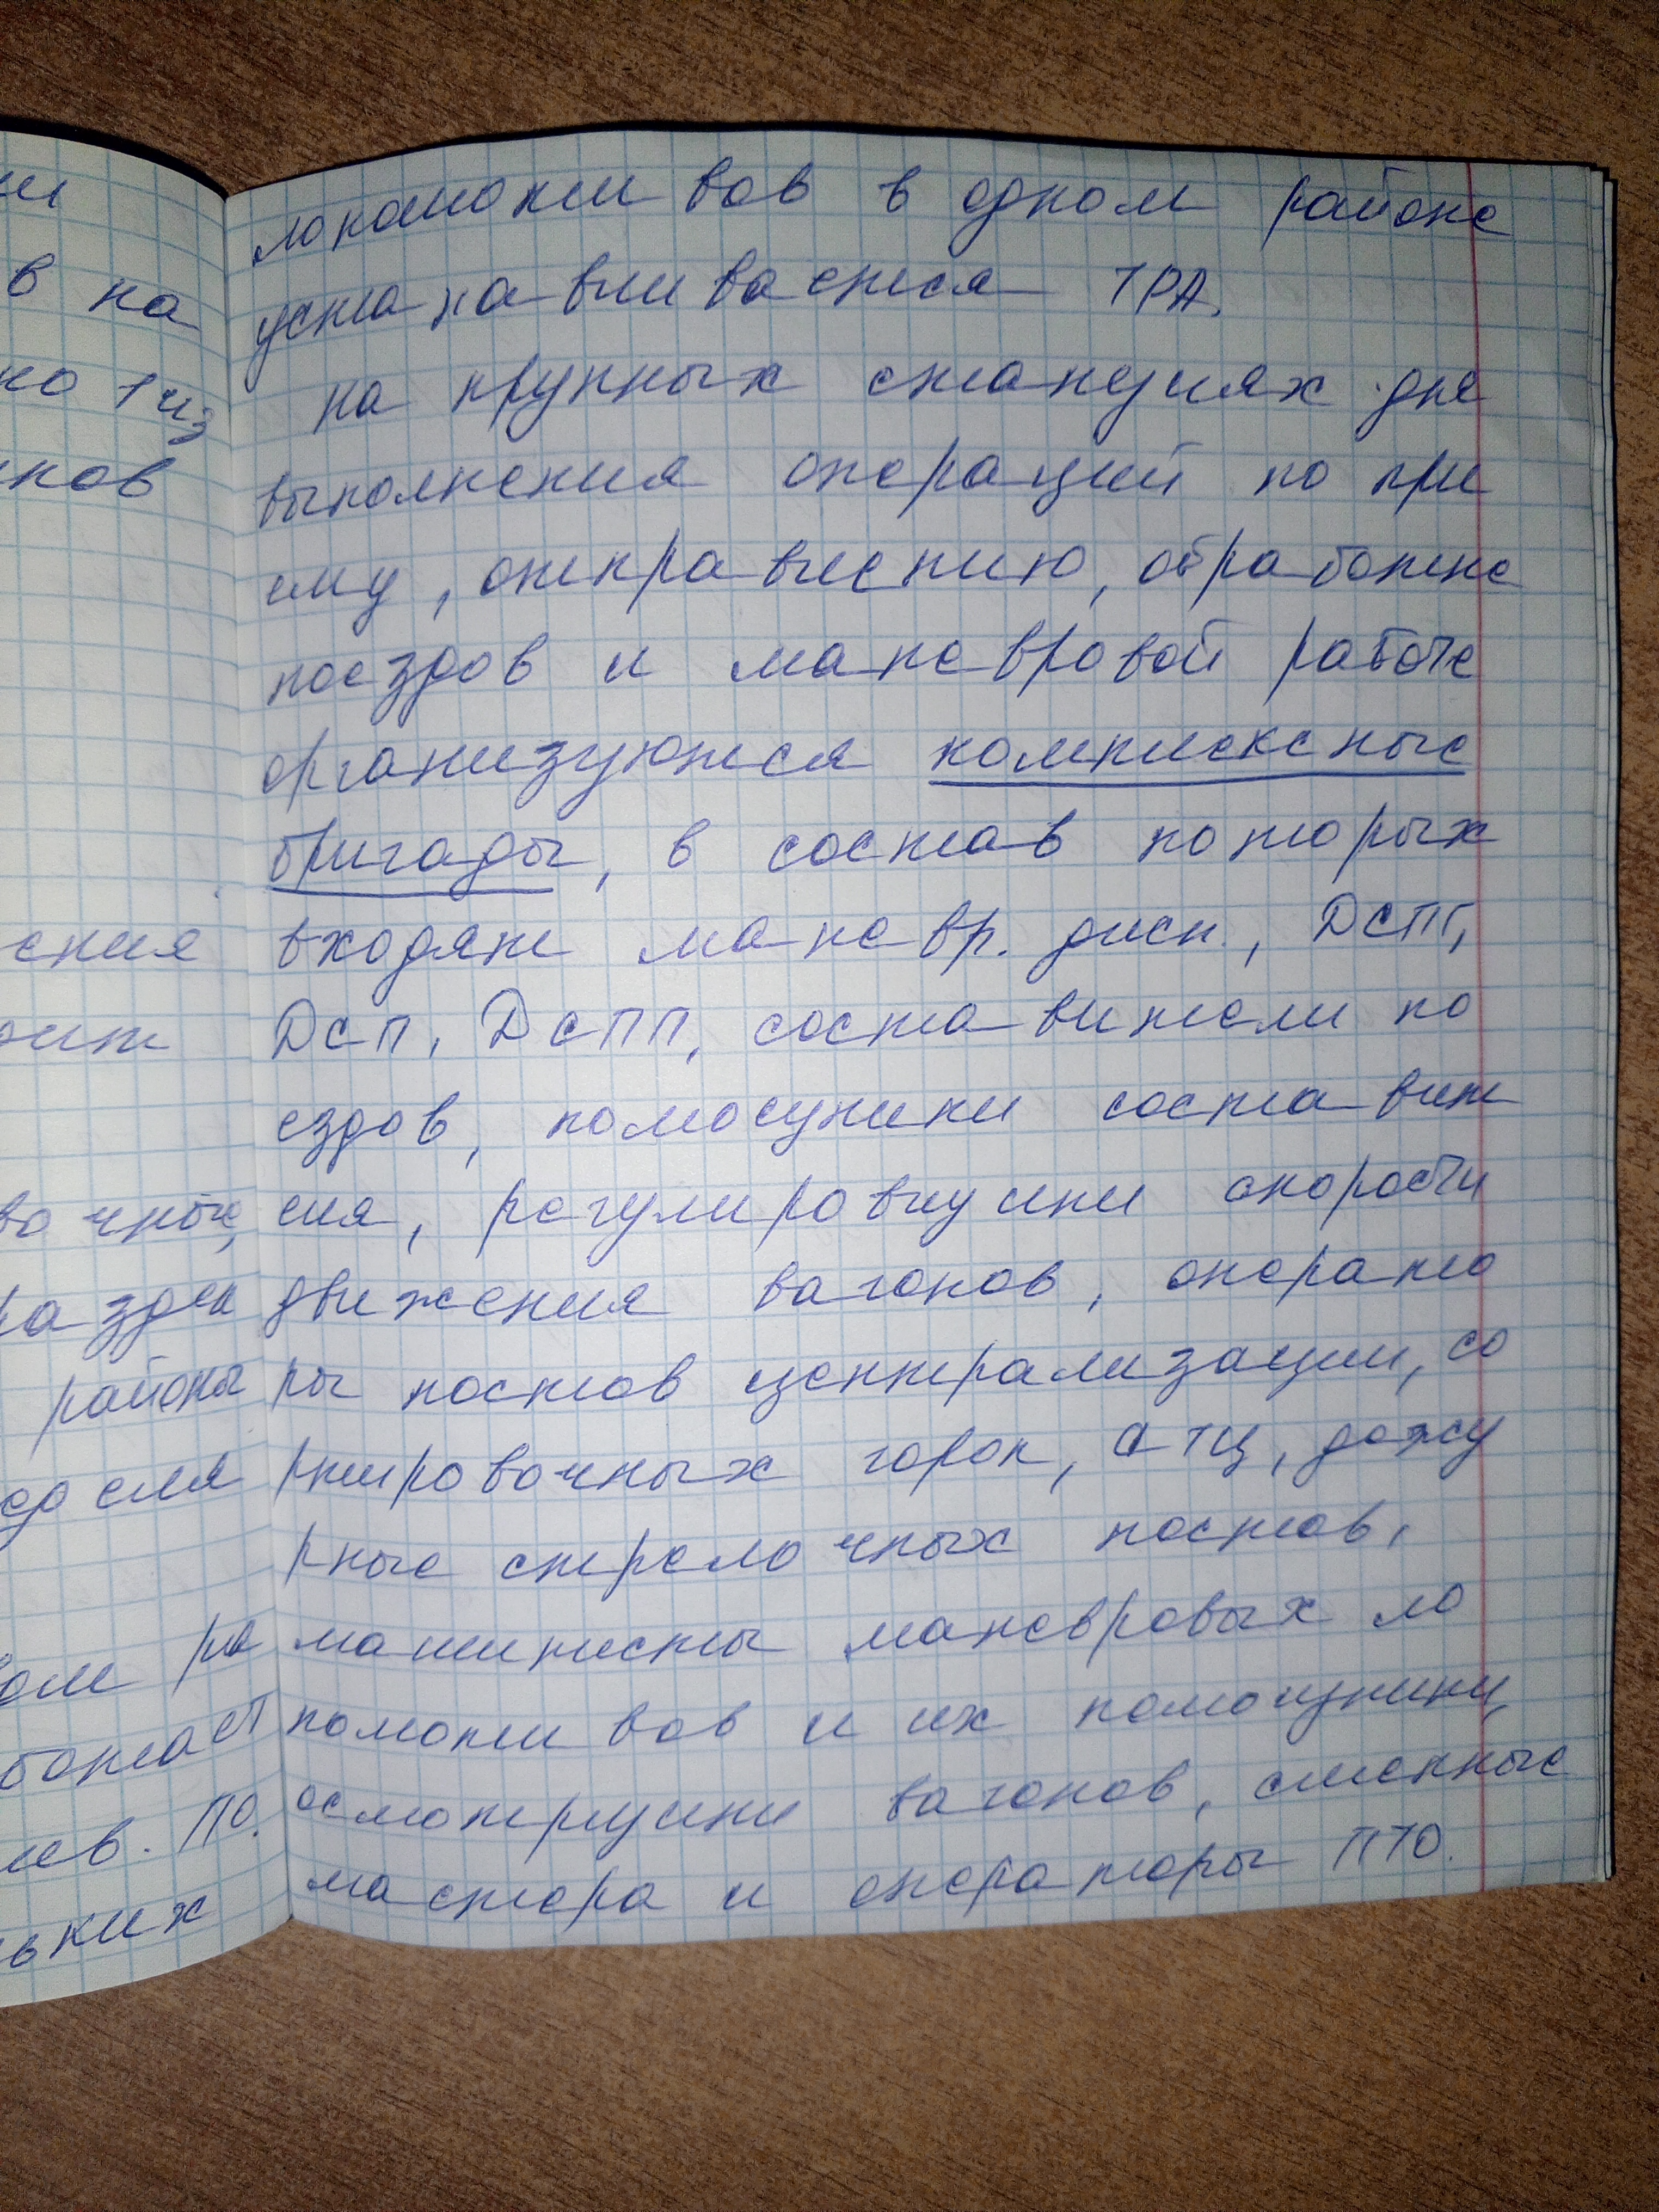 локомотивов в одном районе
устанавливается ТРА.
на крупных станциях для
выполнения операций по при
ему, отправлению, обработке
поездов и маневровой работе
организуются комплексные
бригады, в состав которых
входят маневр. дисп., ДСПГ,
ДСП, ДСПП, составители по
ездов, помощники составит
еля, регулировщики скорости
движения вагонов, операто
ры постов централизации, со
ртировочных горок, СТЦ, дежу
рные стрелочных постов,
машинисты маневровых ло
комотивов и их помощники,
осмотрщики вагонов, сменные
мастера и операторы ПТО.
в на
но 1 из
ения
районы
ПО.
ьких